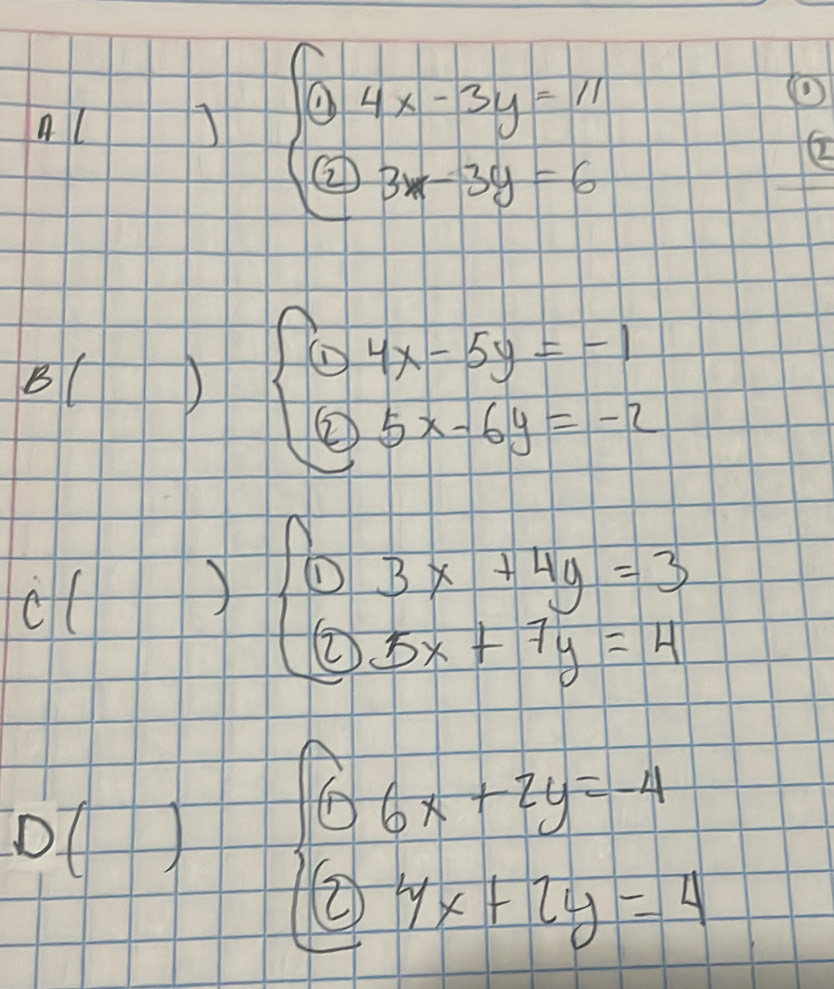 A ( ) ① 4x - 3y = 11 ①
② 3x - 3y = 6 ②
B ( ) ① 4x - 5y = -1
② 5x - 6y = -2
C ( ) ① 3x + 4y = 3
② 5x + 7y = 4
D ( ) ① 6x + 2y = -4
② 4x + 2y = 4